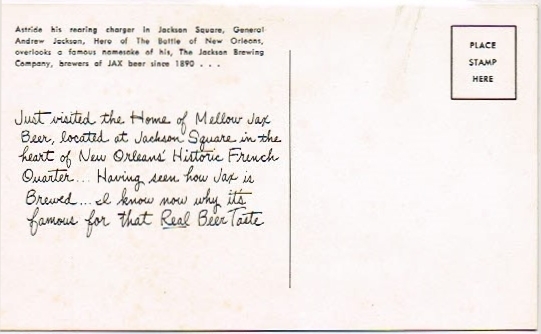 Astride his rearing charger in Jackson Square, General
Andrew Jackson, Hero of The Battle of New Orleans,
overlooks a famous namesake of his, The Jackson Brewing
Company, brewers of JAX beer since 1890 . . .
PLACE
STAMP
HERE
Just visited the Home of Mellow Jax
Beer, located at Jackson Square in the
heart of New Orleans' Historic French
Quarter... Having seen how Jax is
Brewed... I know now why it's
famous for that Real Beer Taste